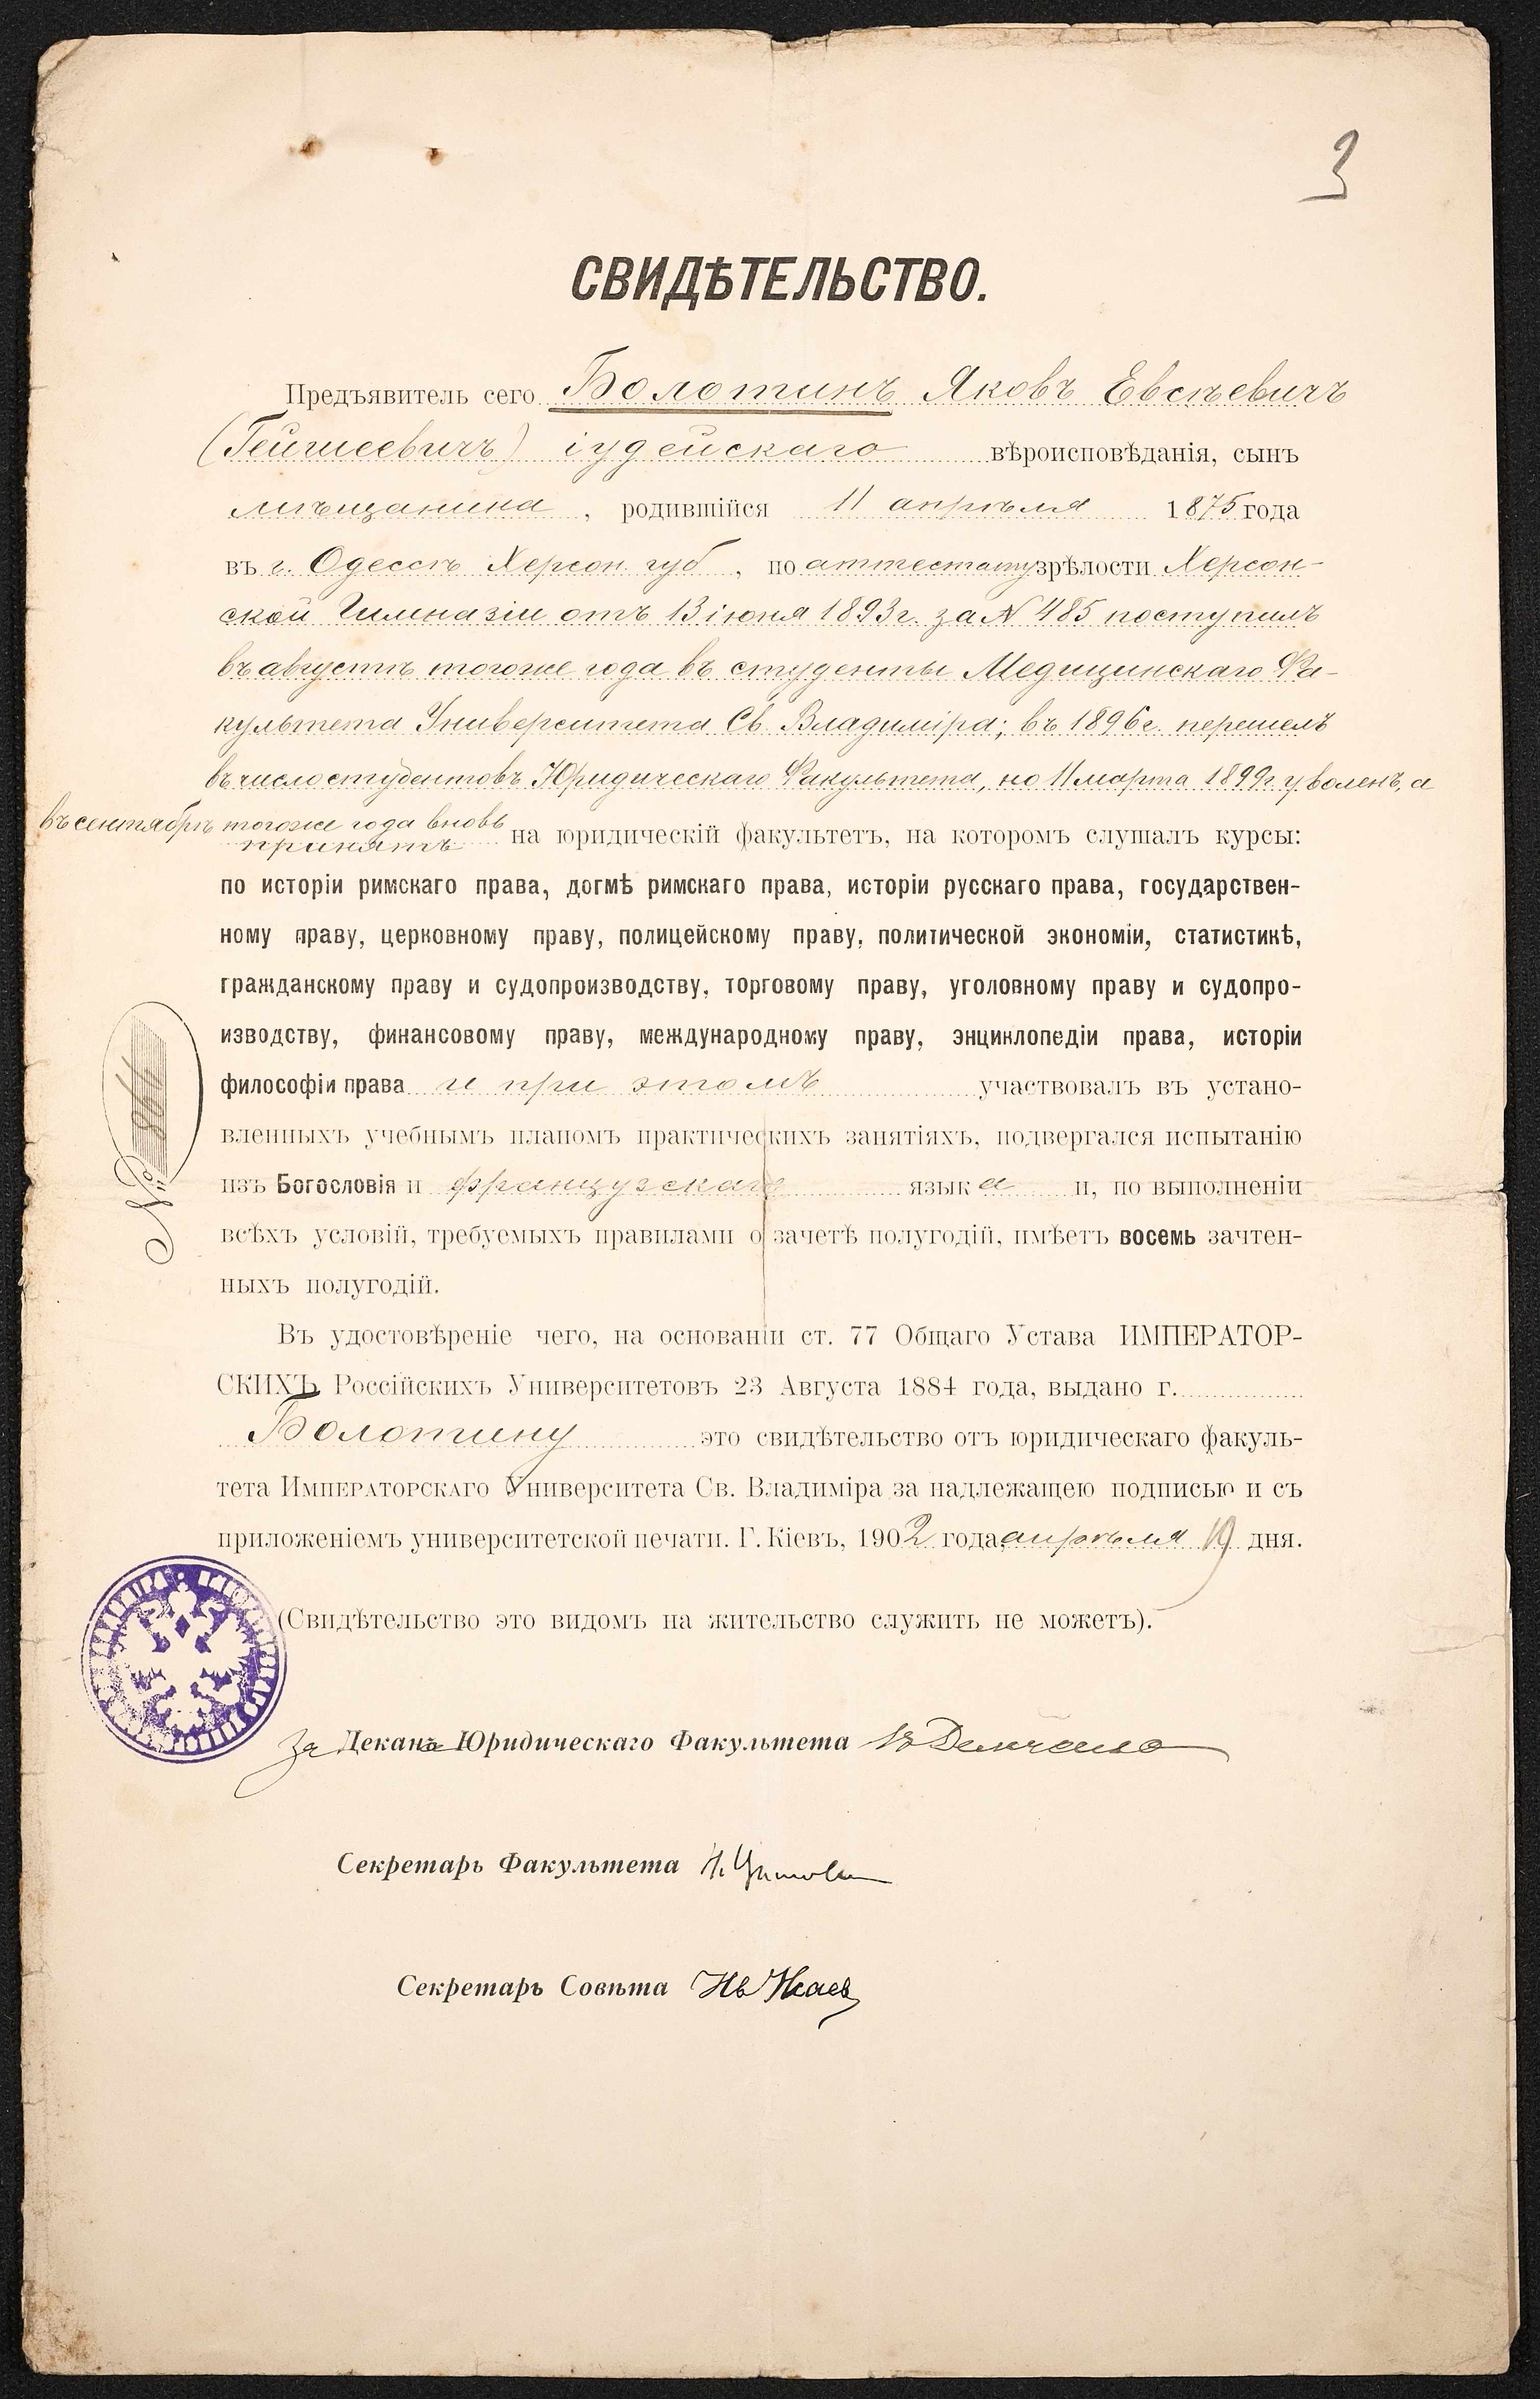 3
СВИДѢТЕЛЬСТВО.
Предъявитель сего Болотинъ Яковъ Евсѣевичъ
(Гейшиевичъ) іудейскаго вѣроисповѣданія, сынъ
мѣщанина, родившійся 11 апрѣля 1875 года
въ г. Одессѣ Херсон. губ, по аттестату зрѣлости Херсон-
ской Гимназіи отъ 13 іюня 1893 г. за № 485 поступилъ
въ августѣ тогоже года въ студенты Медицинскаго Фа-
культета Университета Св. Владиміра; въ 1896 г. перешелъ
въ число студентовъ Юридическаго Факультета, но 11 марта 1899 г. уволенъ, а
въ сентябрѣ тогоже года вновь
принятъ на юридическій факультетъ, на которомъ слушалъ курсы:
по исторіи римскаго права, догмѣ римскаго права, исторіи русскаго права, государствен-
ному праву, церковному праву, полицейскому праву, политической экономіи, статистикѣ,
гражданскому праву и судопроизводству, торговому праву, уголовному праву и судопро-
изводству, финансовому праву, международному праву, энциклопедіи права, исторіи
философіи права и при этомъ участвовалъ въ устано-
вленныхъ учебнымъ планомъ практическихъ занятіяхъ, подвергался испытанію
изъ Богословія и французскаго языка и, по выполненіи
всѣхъ условій, требуемыхъ правилами о зачетѣ полугодій, имѣетъ восемь зачтен-
ныхъ полугодій.
№ 866
Въ удостовѣреніе чего, на основаніи ст. 77 Общаго Устава ИМПЕРАТОР-
СКИХЪ Россійскихъ Университетовъ 23 Августа 1884 года, выдано г.
Болотину это свидѣтельство отъ юридическаго факуль-
тета Императорскаго Университета Св. Владиміра за надлежащею подписью и съ
приложеніемъ университетской печати. Г. Кіевъ, 1902 года апрѣля 19 дня.
(Свидѣтельство это видомъ на жительство служить не можетъ).
За Декана Юридическаго Факультета В Демченко
Секретарь Факультета
Секретарь Совѣта